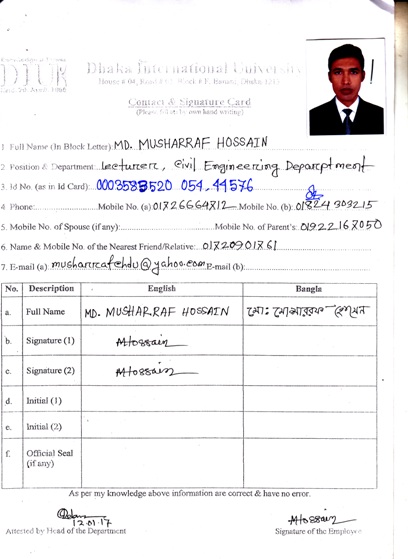 DIU
Dhaka International University
House # 04, Road # 01, Block # F, Banani, Dhaka 1213
Contact & Signature Card
(Please fill in by own hand writing)
1 Full Name (In Block Letter): MD. MUSHARRAF HOSSAIN
2 Position & Department: Lecturer, Civil Engineering Department
3. Id No. (as in Id Card): 0003583520 054,44576
4 Phone: Mobile No. (a): 01726664712 Mobile No. (b): 01824 903215
5. Mobile No. of Spouse (if any): Mobile No. of Parent's: 01922167050
6. Name & Mobile No. of the Nearest Friend/Relative: 01720901761
7. E-mail (a) E-mail (b):
No. Description English Bangla
a. Full Name MD. MUSHARRAF HOSSAIN মো: মোশাররফ হোসেন
b. Signature (1) MHossain
c. Signature (2) MHossain
d. Initial (1)
e. Initial (2)
f. Official Seal
(if any)
As per my knowledge above information are correct & have no error.
12.01.17 MHossain
Attested by Head of the Department Signature of the Employee